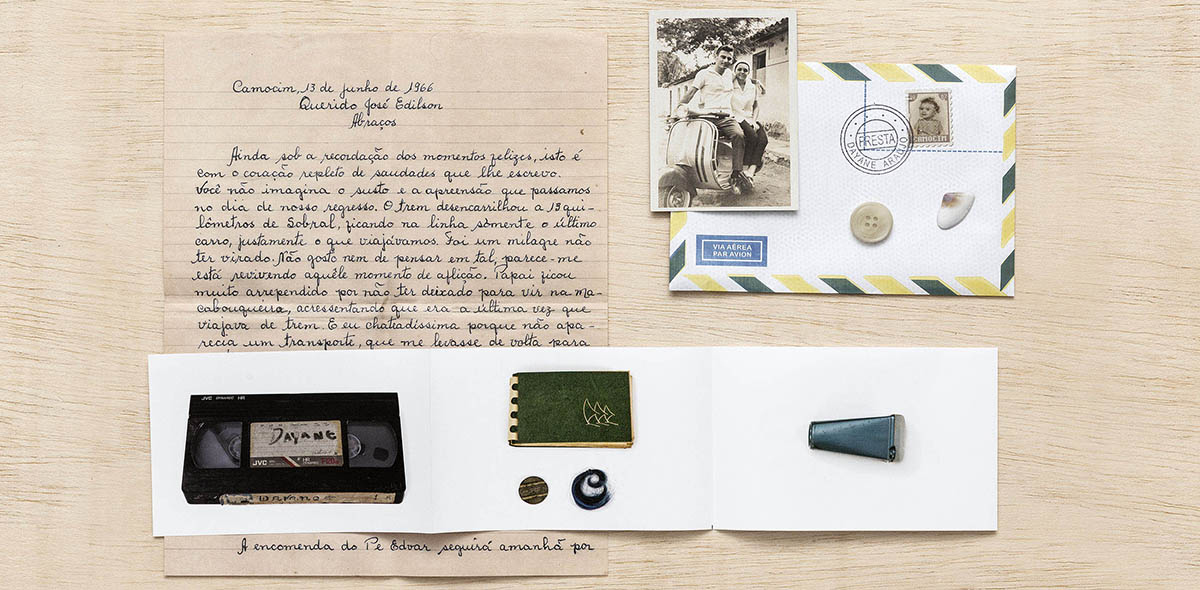 Camocim, 13 de junho de 1966
Querido José Edilson
Abraços
Ainda sob a recordação dos momentos felizes, isto é
com o coração repleto de saudades que lhe escrevo.
Você não imagina o susto e a apreensão que passamos
no dia de nosso regresso. O trem desencarrilhou a 19 qui-
lômetros de Sobral, ficando na linha sòmente o último
carro, justamente o que viajávamos. Foi um milagre não
ter virado. Não gosto nem de pensar em tal, parece-me
está revivendo aquêle momento de aflição. Papai ficou
muito arrependido por não ter deixado para vir na ma-
cabouqueira, acressentando que era a última vez que
viajava de trem. E eu chateadíssima porque não apa-
recia um transporte, que me levasse de volta para
A encomenda do Pe Edvar seguirá amanhã por
FRESTA
DAYANE ARAÚJO
CAMOCIM
VIA AÉREA
PAR AVION
JVC DYNAMIC HR
DAYANE
JVC
HR
DAYANE